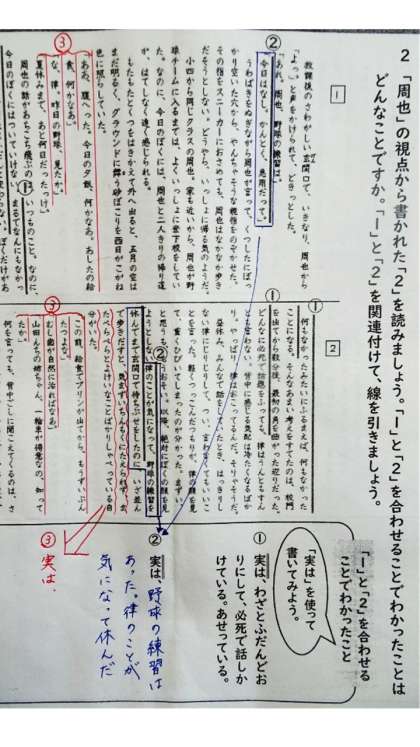 2 「周也」の視点から書かれた「2」を読みましょう。「1」と「2」を合わせることでわかったことは
どんなことですか。「1」と「2」を関連付けて、線を引きましょう。
1
放課後のさわがしい玄関口で、いきなり、周也から
「よっ。」と声をかけられて、どきっとした。
「あれ。周也、野球の練習は。」
②
「今日はなし。かんとく、急用だって。」
うわばきをぬぎながら周也が言って、くつしたにぽっ
かり空いた穴から、やんちゃそうな親指をのぞかせた。
その指をスニーカーにおさめても、周也はなかなか歩き
だそうとしない。どうやら、いっしょに帰る気のようだ。
小四から同じクラスの周也。家も近いから、周也が野
球チームに入るまでは、よくいっしょに登下校をしてい
た。なのに、今日のぼくには、周也と二人きりの帰り道
が、はてしなく遠く感じられる。
もたもたとくつをはきかえて外へ出ると、五月の空は
まだ明るく、グラウンドに舞う砂ぼこりを西日がこがね
色に照らしていた。
③
「ああ、腹へった。今日の夕飯、何かなあ。あしたの給
食、何かなあ。」
「な、律。昨日の野球、見たか。」
「夏休みまで、あと何日だったっけ。」
周也の話があちこち飛ぶのは、いつものこと。なのに、
今日のぼくにはついていけない。
2
①
何もなかったみたいにふるまえば、何もなかった
ことになる。そんなあまい考えをすてたのは、校門
を出てから数分後、最初の角を曲がった辺りだった。
①
どんなに必死で話題をふっても、律はうんともすん
とも言わない。背中に感じる気配は冷たくなるばか
り。やっぱり、律はおこってるんだ。そりゃそうだ。
昼休み、みんなで話をしていたとき、はっきりし
ない律にじりじりして、つい、言わなくてもいいこ
とを言った。軽くつっこんだつもりが、律の顔を見
て、重くひびいてしまったのが分かった。まずい、
と思うも、もうおそい。以降、絶対にぼくの顔を見
②
ようとしない律のことが気になって、野球の練習を
休んでまで玄関口で待ちぶせをしたのに、いざ並ん
で歩きだすと、気まずいちんもくにたえられず、ま
たぺらぺらとよけいなことばかりしゃべっている自
分がいた。
③
「この前、給食でプリンが出てから、もうずいぶん
たつよな。」
「むし歯が自然に治ればなあ。」
「山田んちの姉ちゃん、一輪車が得意なの、知って
たか。」
何を言っても、背中ごしに聞こえてくるのは、さ
「1」と「2」を合わせる
ことでわかったこと
「実は」を使って
書いてみよう。
① 実は、わざとふだんどお
りにして、必死で話しか
けている。あせっている。
② 実は、野球の練習は
あった。律のことが
気になって休んだ
③ 実は